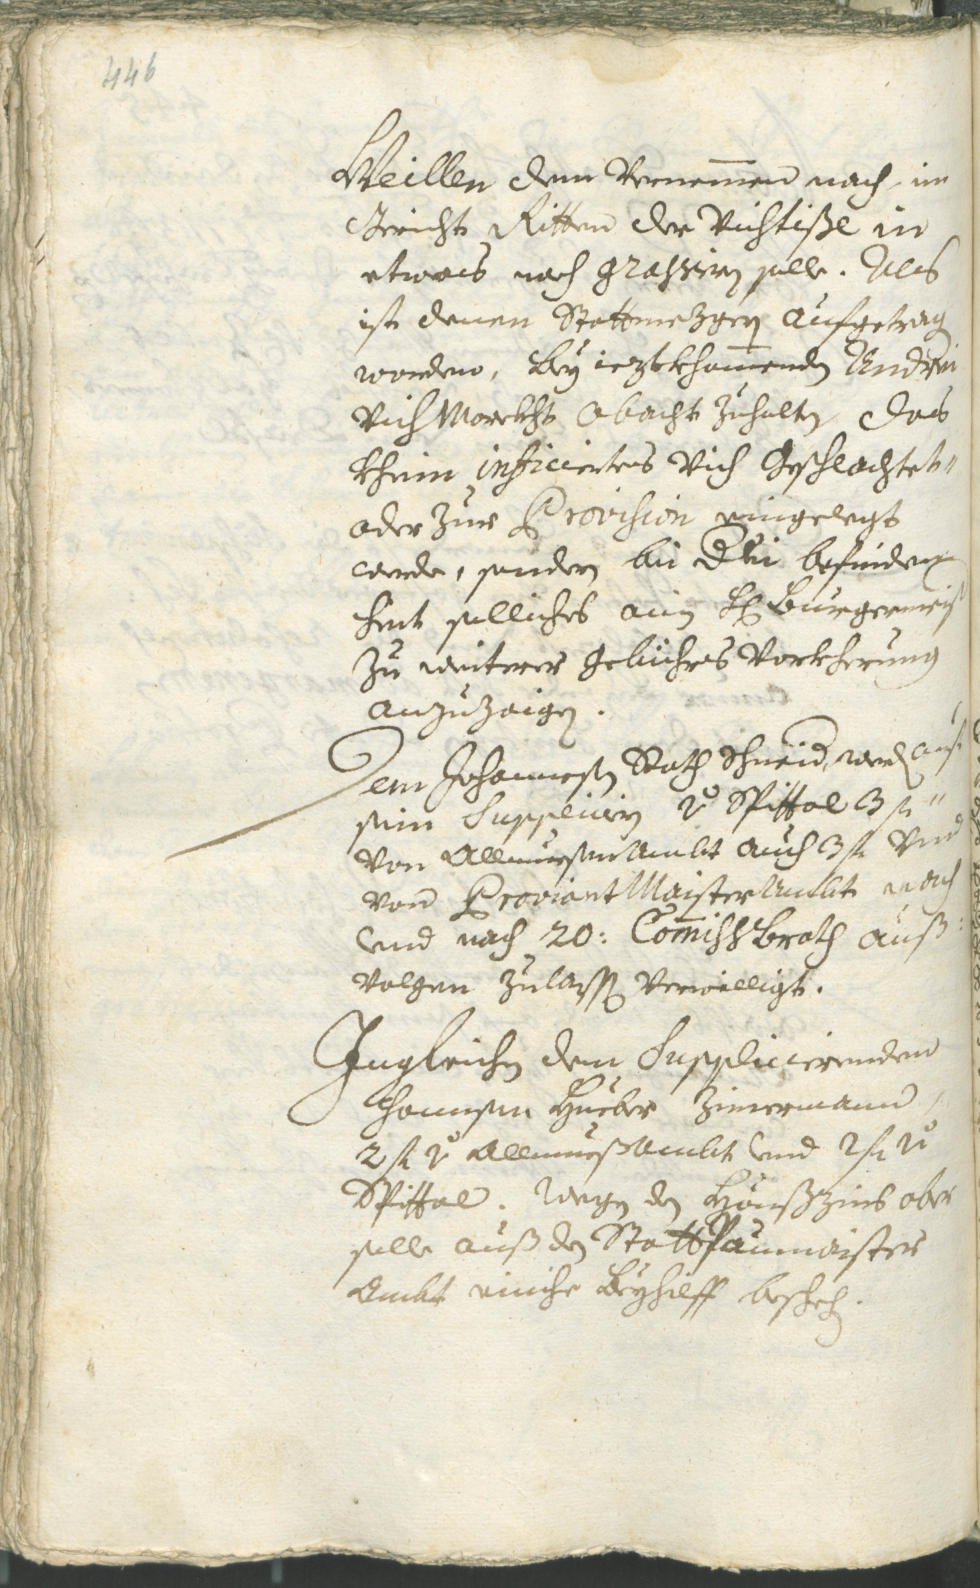 446
Weillen dem Vernemmen nach, im
Gericht Ritten der Vichtiße in
etwas noch grassiern solle. Als
ist denen Stattmezgern aufgetrag
worden, bey iezt khommenden Andrei
Vich Marckht obacht zuhalten, das
khein inficiertes Vich geschlachtet"
oder zur Provision eingelegt
werde, sondern bei befinden
heit solliches ain H. Burgermeist
zu weiterer gebihrs Vorkherung
anzuzaigen.
Dem Johannesen Rath Schneid, werd auf
sein Supplicirn v Spittal 3 fl"
von Allmuesenambt auch 3 fl vnd
von ProviantMaisterambt nach
vnd nach 20: Commißbroth auß:
volgen zulassen verwilligt.
Ingleichen dem Supplicierenden
Hannsen Hueber Zimermann,
2 fl v Allmueßambt vnd 2 fl v
Spittal. Wegen den Haußzins aber
solle auß den StattPaumaister
Ambt einiche Beyhilff beschehen.